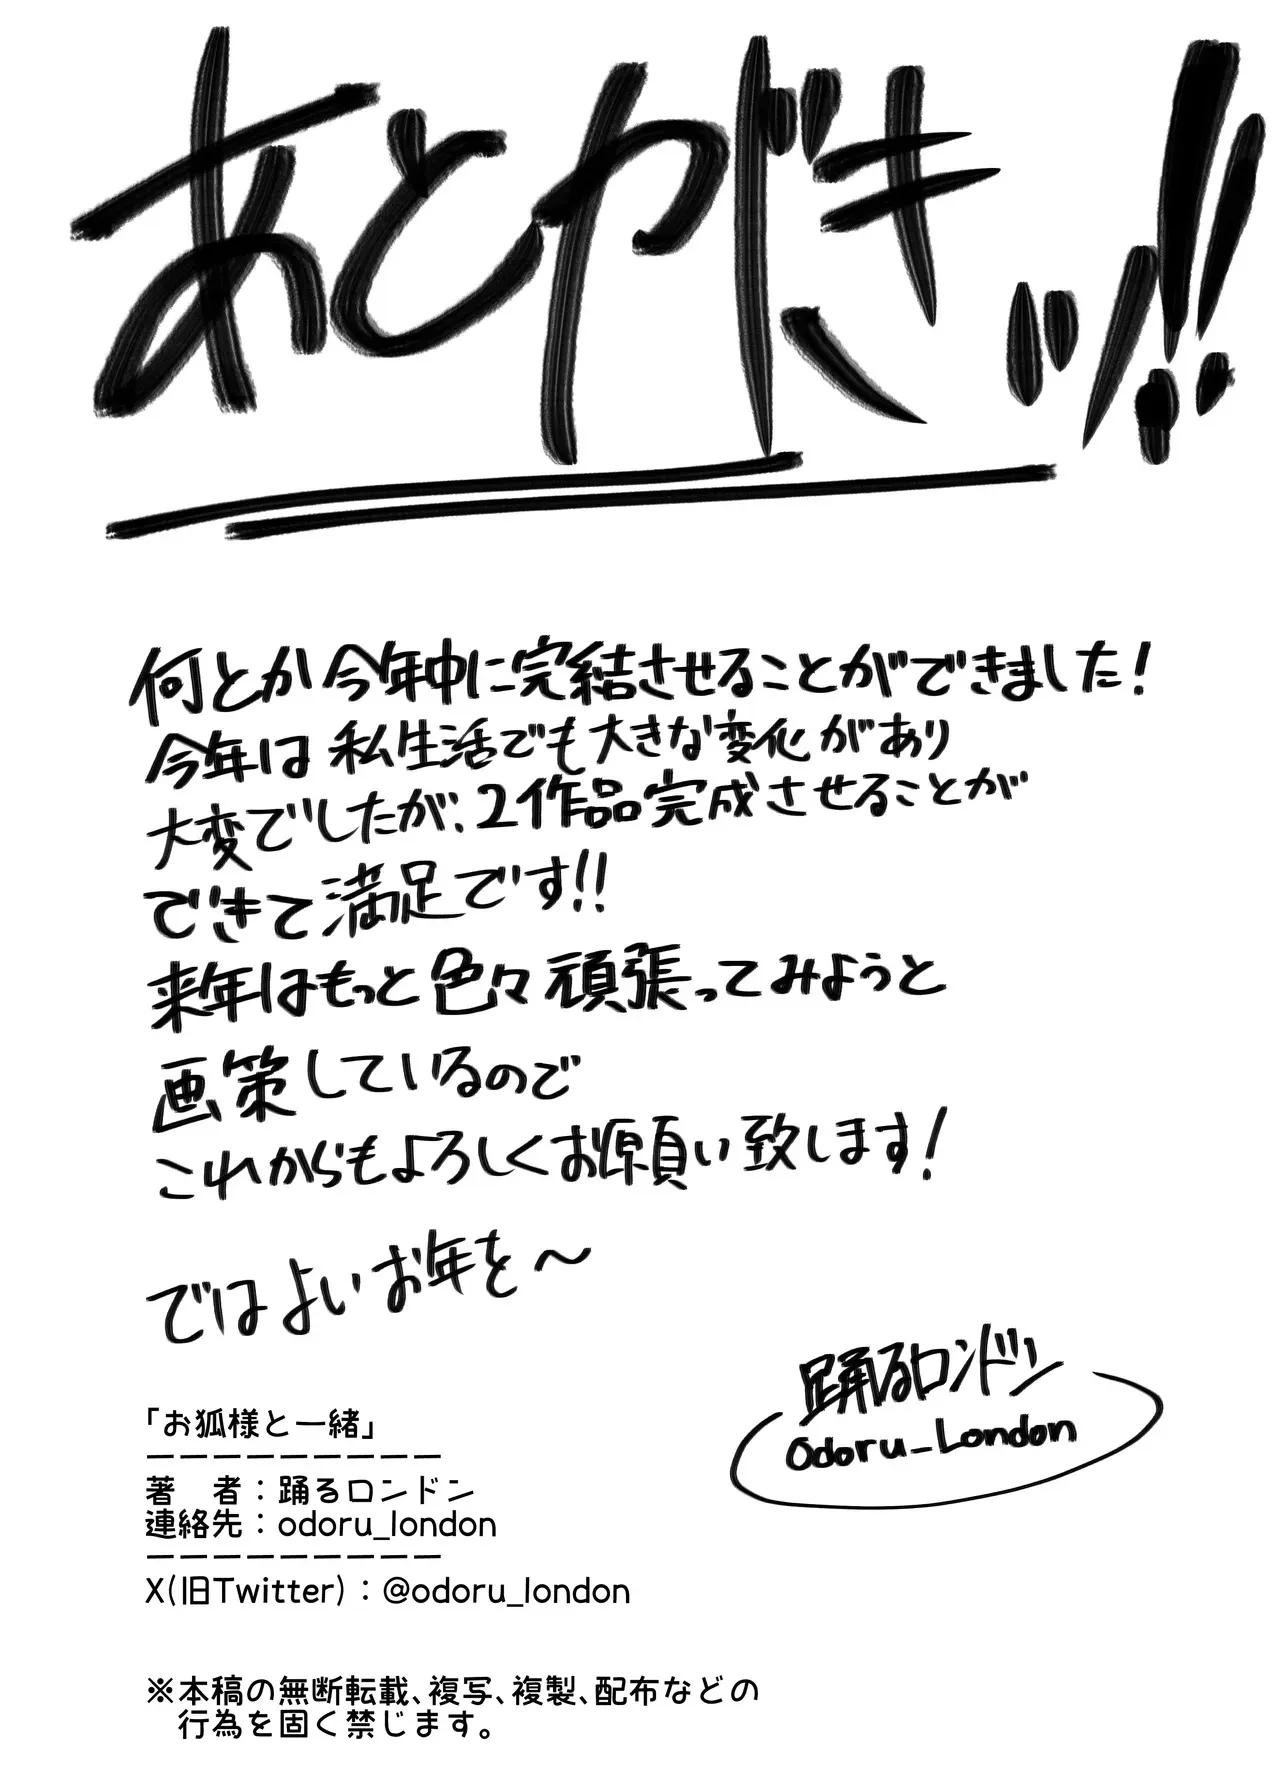 あとがきッ!!
何とか今年中に完結させることができました!
今年は私生活でも大きな変化があり
大変でしたが、2作品完成させることが
できて満足です!!
来年はもっと色々頑張ってみようと
画策しているので
これからもよろしくお願い致します!
ではよいお年を〜
踊るロンドン
Odoru_London
「お狐様と一緒」
ーーーーーーーーー
著　者：踊るロンドン
連絡先：odoru_london
ーーーーーーーーー
X(旧Twitter)：@odoru_london
※本稿の無断転載、複写、複製、配布などの
行為を固く禁じます。